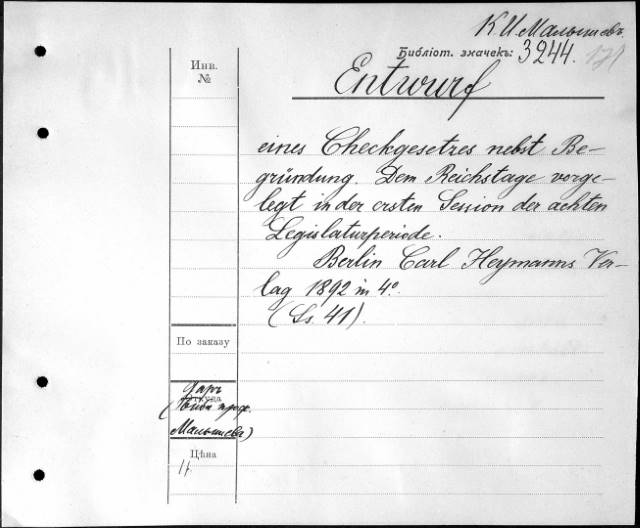 К. И. Малышевъ
Библіот. значекъ: 3244.
Инв.
№
Entwurf
eines Checkgesetzes nebst Be-
gründung. Dem Reichstage vorge-
legt in der ersten Session der achten
Legislaturperiode.
Berlin Carl Heymanns Ver-
lag 1892 in 4°.
(Ss. 41).
По заказу
Даръ
Откуда
(Библ. проф.
Малышева)
Цѣна